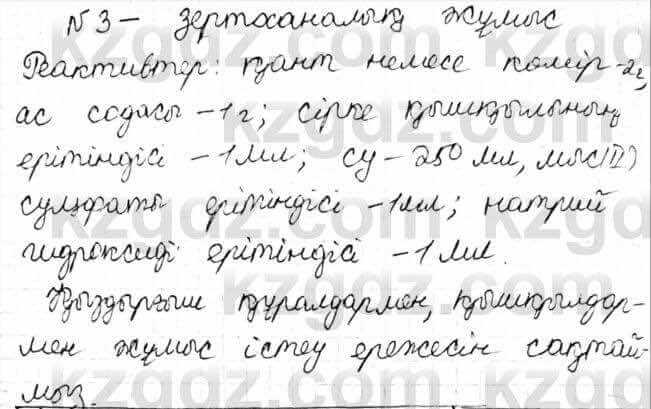 №3 – зертханалық жұмыс
Реактивтер: қант немесе көмір -2г,
ас содасы -1г; сірке қышқылының
ерітіндісі -1мл; су-250 мл, мыс(II)
сульфаты ерітіндісі -1мл; натрий
гидроксиді ерітіндісі -1 мл.
Қыздырғыш құралдармен, қышқылдар-
мен жұмыс істеу ережесін сақтай-
мыз.